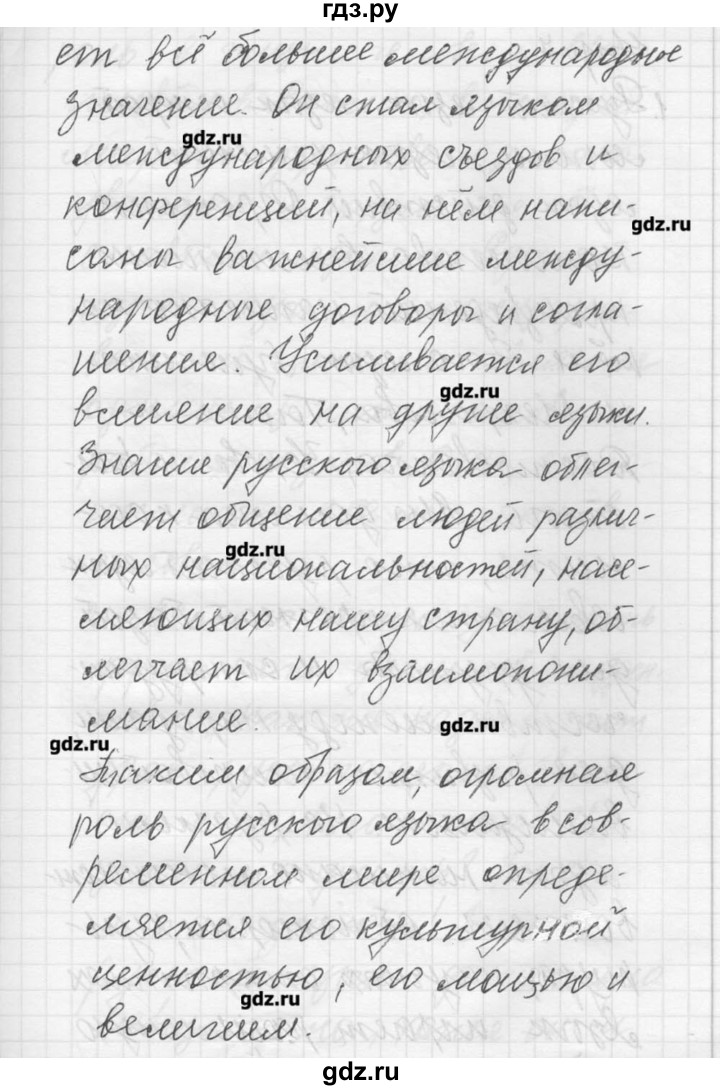 гдз.ру
ет всё большее международные
значение. Он стал языком
gdz.ru
международных съездов и
конференций, на нём напи-
gdz.ru
саны важнейшие между-
народные договоры и согла-
шения. Усиливается его
gdz.ru
влияние на другие языки.
Знание русского языка облег-
чает общение людей различ-
gdz.ru
ных национальностей, насе-
ляющих нашу страну, об-
легчает их взаимопони-
мание.
gdz.ru
gdz.ru
Таким образом, огромная
роль русского языка в сов-
ременном мире опреде-
ляется его культурной
ценностью, его мощью и
gdz.ru
величием.
gdz.ru